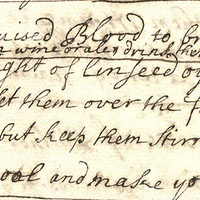 uised Blood to br
wine or ale drink the
ght of linseed o
let them over the f
but keep them stirr
ool and make yo